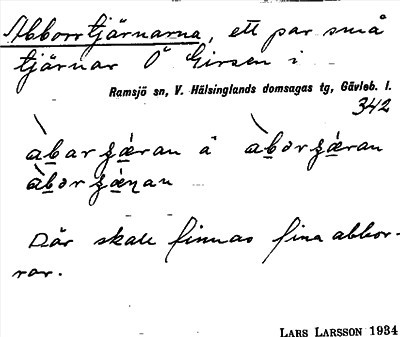 Abborrtjärnarna, ett par små
tjärnar Ö Girsen i
Ramsjö sn, V. Hälsinglands domsagas tg, Gävleb. l.
342
àbarʒæran å àborʒæran
àborʒæɳan
Där skall finnas fina abbor-
rar.
LARS LARSSON 1934